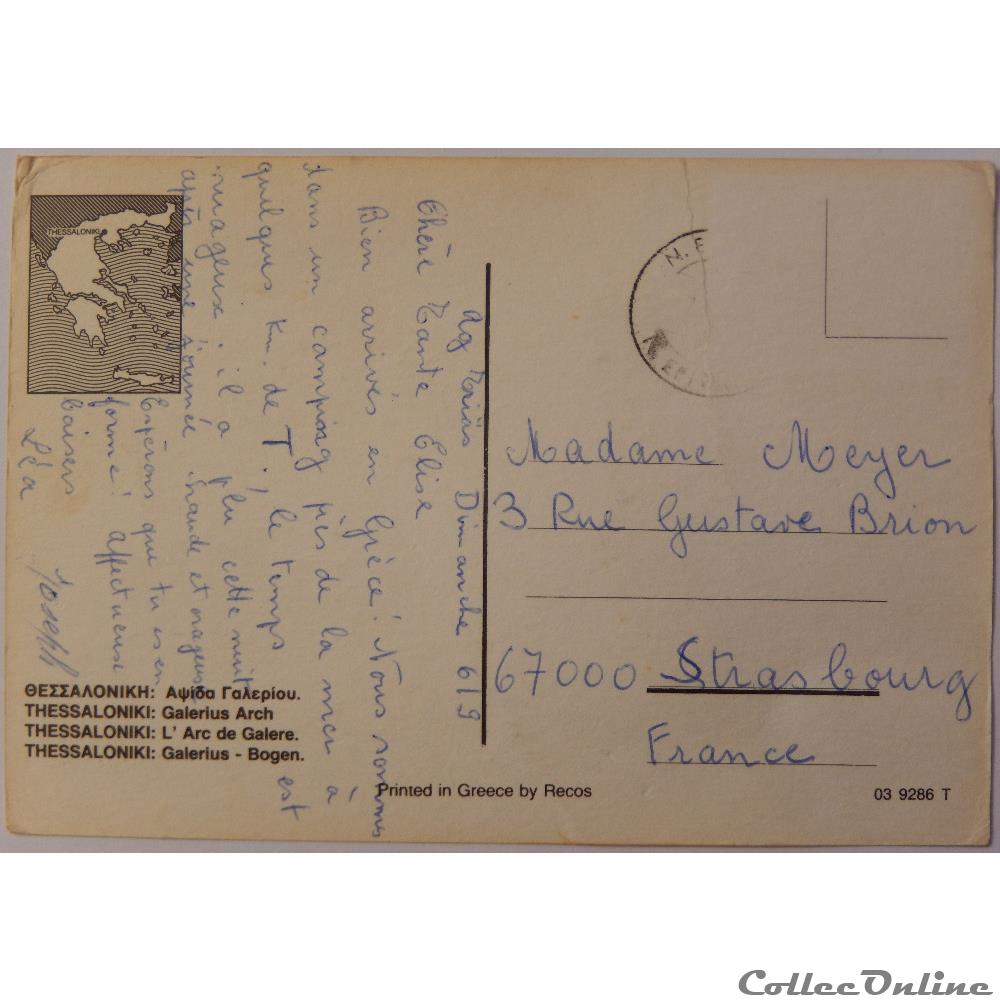 THESSALONIKI
Ag Trias Dimanche 6/9
Chère Tante Elise
Bien arrivés en Grèce! Nous sommes
dans un camping près de la mer à
quelques Km. de T.; le temps est
nuageux il a plu cette nuit
après une journée chaude et orageuse
Espérons que tu es en
forme! affectueuse
baisers
Léa Joseph
ΘΕΣΣΑΛΟΝΙΚΗ: Αψίδα Γαλερίου.
THESSALONIKI: Galerius Arch
THESSALONIKI: L' Arc de Galere.
THESSALONIKI: Galerius - Bogen.
Madame Meyer
3 Rue Gustave Brion
67000 Strasbourg
France
Printed in Greece by Recos
03 9286 T
CollecOnline